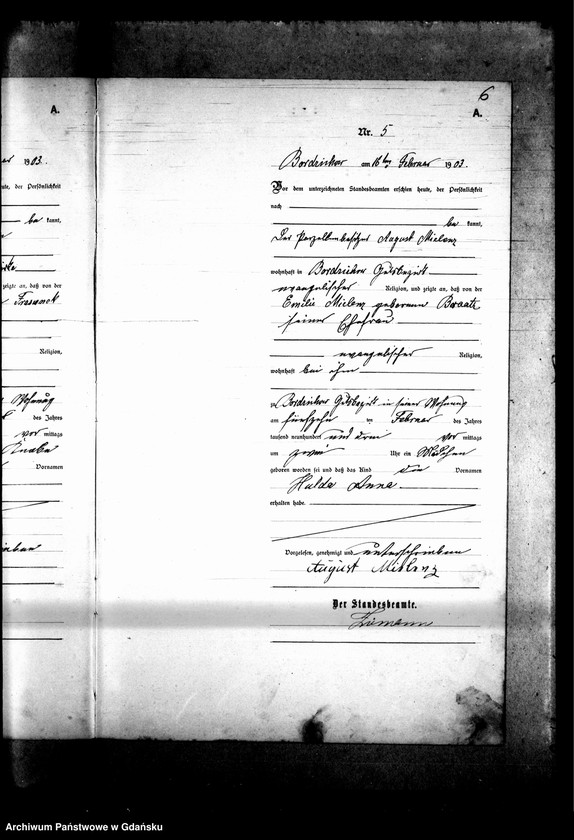 A.
1903.
heute, der Persönlichkeit
be kannt,
zeigte an, daß von der
Religion,
Wohnung
des Jahres
vor mittags
Knabe
Vornamen
6
A.
Nr. 5
am 16ten Februar 1903.
Vor dem unterzeichneten Standesbeamten erschien heute, der Persönlichkeit
nach
be kannt,
der Parzellenbesitzer August Mielenz
wohnhaft in Bordzichow Gutsbezirk
evangelischer Religion, und zeigte an, daß von der
Emilie Mielenz geborenen
seiner Ehefrau
evangelischer Religion,
wohnhaft bei ihm
zu Bordzichow Gutsbezirk in seiner Wohnung
am fünfzehn ten Februar des Jahres
tausend neunhundert und drei vor mittags
um zwei Uhr ein Mädchen
geboren worden sei und daß das Kind die Vornamen
Hulda Anna
erhalten habe.
Vorgelesen, genehmigt und unterschrieben
August Mielenz
Der Standesbeamte.
Archiwum Państwowe w Gdańsku